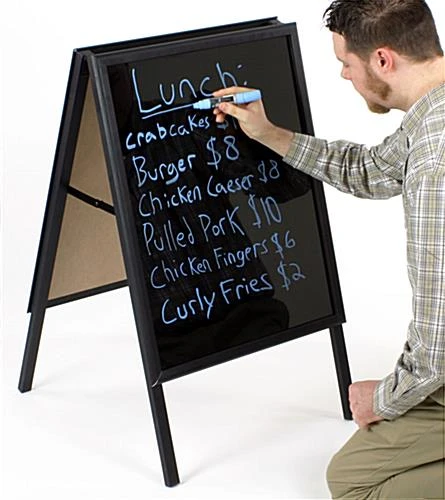 Lunch:
crabcakes
Burger $8
Chicken Caeser $8
Pulled Pork $10
Chicken Fingers $6
Curly Fries $2